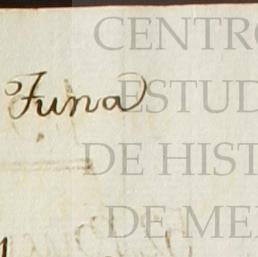 CENTRO
Funa
ESTUD
DE HIST
DE ME